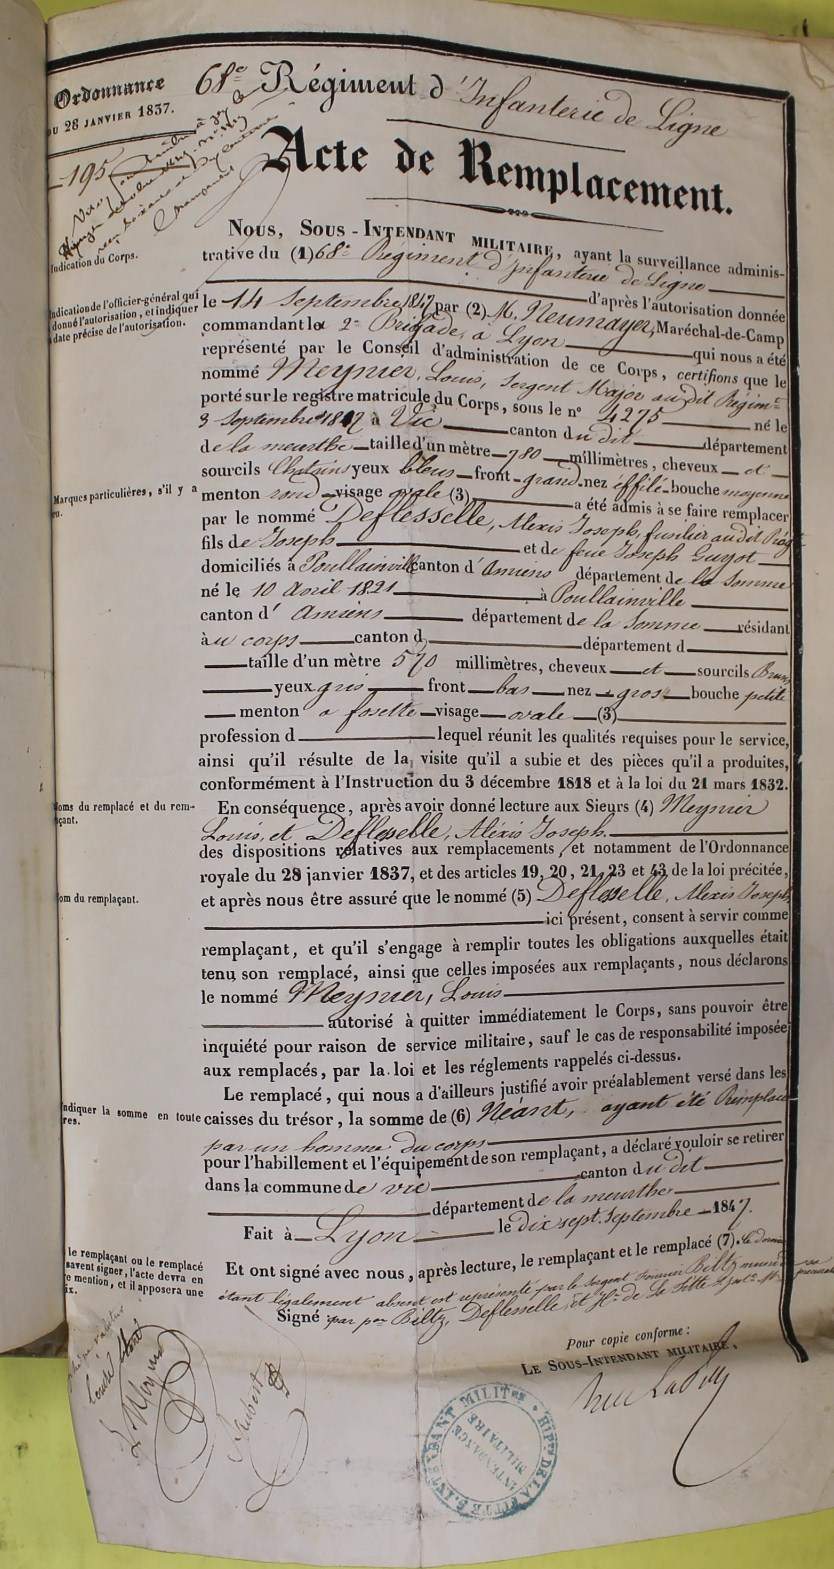 Ordonnance
DU 28 JANVIER 1837.
68e Régiment d'Infanterie de Ligne
Acte de Remplacement.
195
Indication du Corps.
Nous, Sous-Intendant militaire, ayant la surveillance adminis-
trative du (1) 68e Régiment d'Infanterie de Ligne
Indication de l'officier-général qui
donné l'autorisation, et indiquer
date précise de l'autorisation.
d'après l'autorisation donnée
le 14 Septembre 1847 par (2) M. Neumayer, Maréchal-de-Camp
commandant la 2e Brigade, à Lyon qui nous a été
représenté par le Conseil d'administration de ce Corps, certifions que le
nommé Meynier, Louis, Sergent Major au dit Régimt
porté sur le registre matricule du Corps, sous le no 4275 né le
3 Septembre à Vic canton du dit département
de la meurthe taille d'un mètre 780 millimètres, cheveux et
sourcils Chatains yeux bleus front grand nez effilé bouche moyenne
Marques particulières, s'il y a
menton rond visage ovale (3) a été admis à se faire remplacer
par le nommé Deflesselle, Alexis Joseph, fusilier au dit Régt
fils de Joseph et de feue Joseph Guyot
domiciliés à Poullainville canton d'Amiens département de la Somme
né le 10 Avril 1821 à Poullainville
canton d'Amiens département de la Somme résidant
au corps canton d département d
taille d'un mètre 570 millimètres, cheveux et sourcils Bruns
yeux gris front bas nez gros bouche petite
menton a fosette visage ovale (3)
profession d lequel réunit les qualités requises pour le service,
ainsi qu'il résulte de la visite qu'il a subie et des pièces qu'il a produites,
conformément à l'Instruction du 3 décembre 1818 et à la loi du 21 mars 1832.
Noms du remplacé et du rem-
plaçant.
En conséquence, après avoir donné lecture aux Sieurs (4) Meynier
Louis, et Deflesselle, Alexis Joseph.
des dispositions relatives aux remplacements, et notamment de l'Ordonnance
royale du 28 janvier 1837, et des articles 19, 20, 21, 23 et 43 de la loi précitée,
Nom du remplaçant.
et après nous être assuré que le nommé (5) Deflesselle, Alexis Joseph
ici présent, consent à servir comme
remplaçant, et qu'il s'engage à remplir toutes les obligations auxquelles était
tenu son remplacé, ainsi que celles imposées aux remplaçants, nous déclarons
le nommé Meynier, Louis
autorisé à quitter immédiatement le Corps, sans pouvoir être
inquiété pour raison de service militaire, sauf le cas de responsabilité imposée
aux remplacés, par la loi et les réglements rappelés ci-dessus.
Le remplacé, qui nous a d'ailleurs justifié avoir préalablement versé dans les
Indiquer la somme en toute
res.
caisses du trésor, la somme de (6) Néant, ayant été Remplacé
par un homme du corps
pour l'habillement et l'équipement de son remplaçant, a déclaré vouloir se retirer
dans la commune de vic canton du dit
département de la meurthe
Fait à Lyon le dix sept Septembre 1847.
le remplaçant ou le remplacé
savent signer, l'acte devra en
e mention, et il apposera une
ix.
Et ont signé avec nous, après lecture, le remplaçant et le remplacé (7). Ce dernier
étant légalement absent est représenté par le Sergent Biltz
Signé Biltz, Deflesselle, et
Pour copie conforme :
Le Sous-Intendant militaire,
L. Meynier
INTENDANCE
MILITAIRE